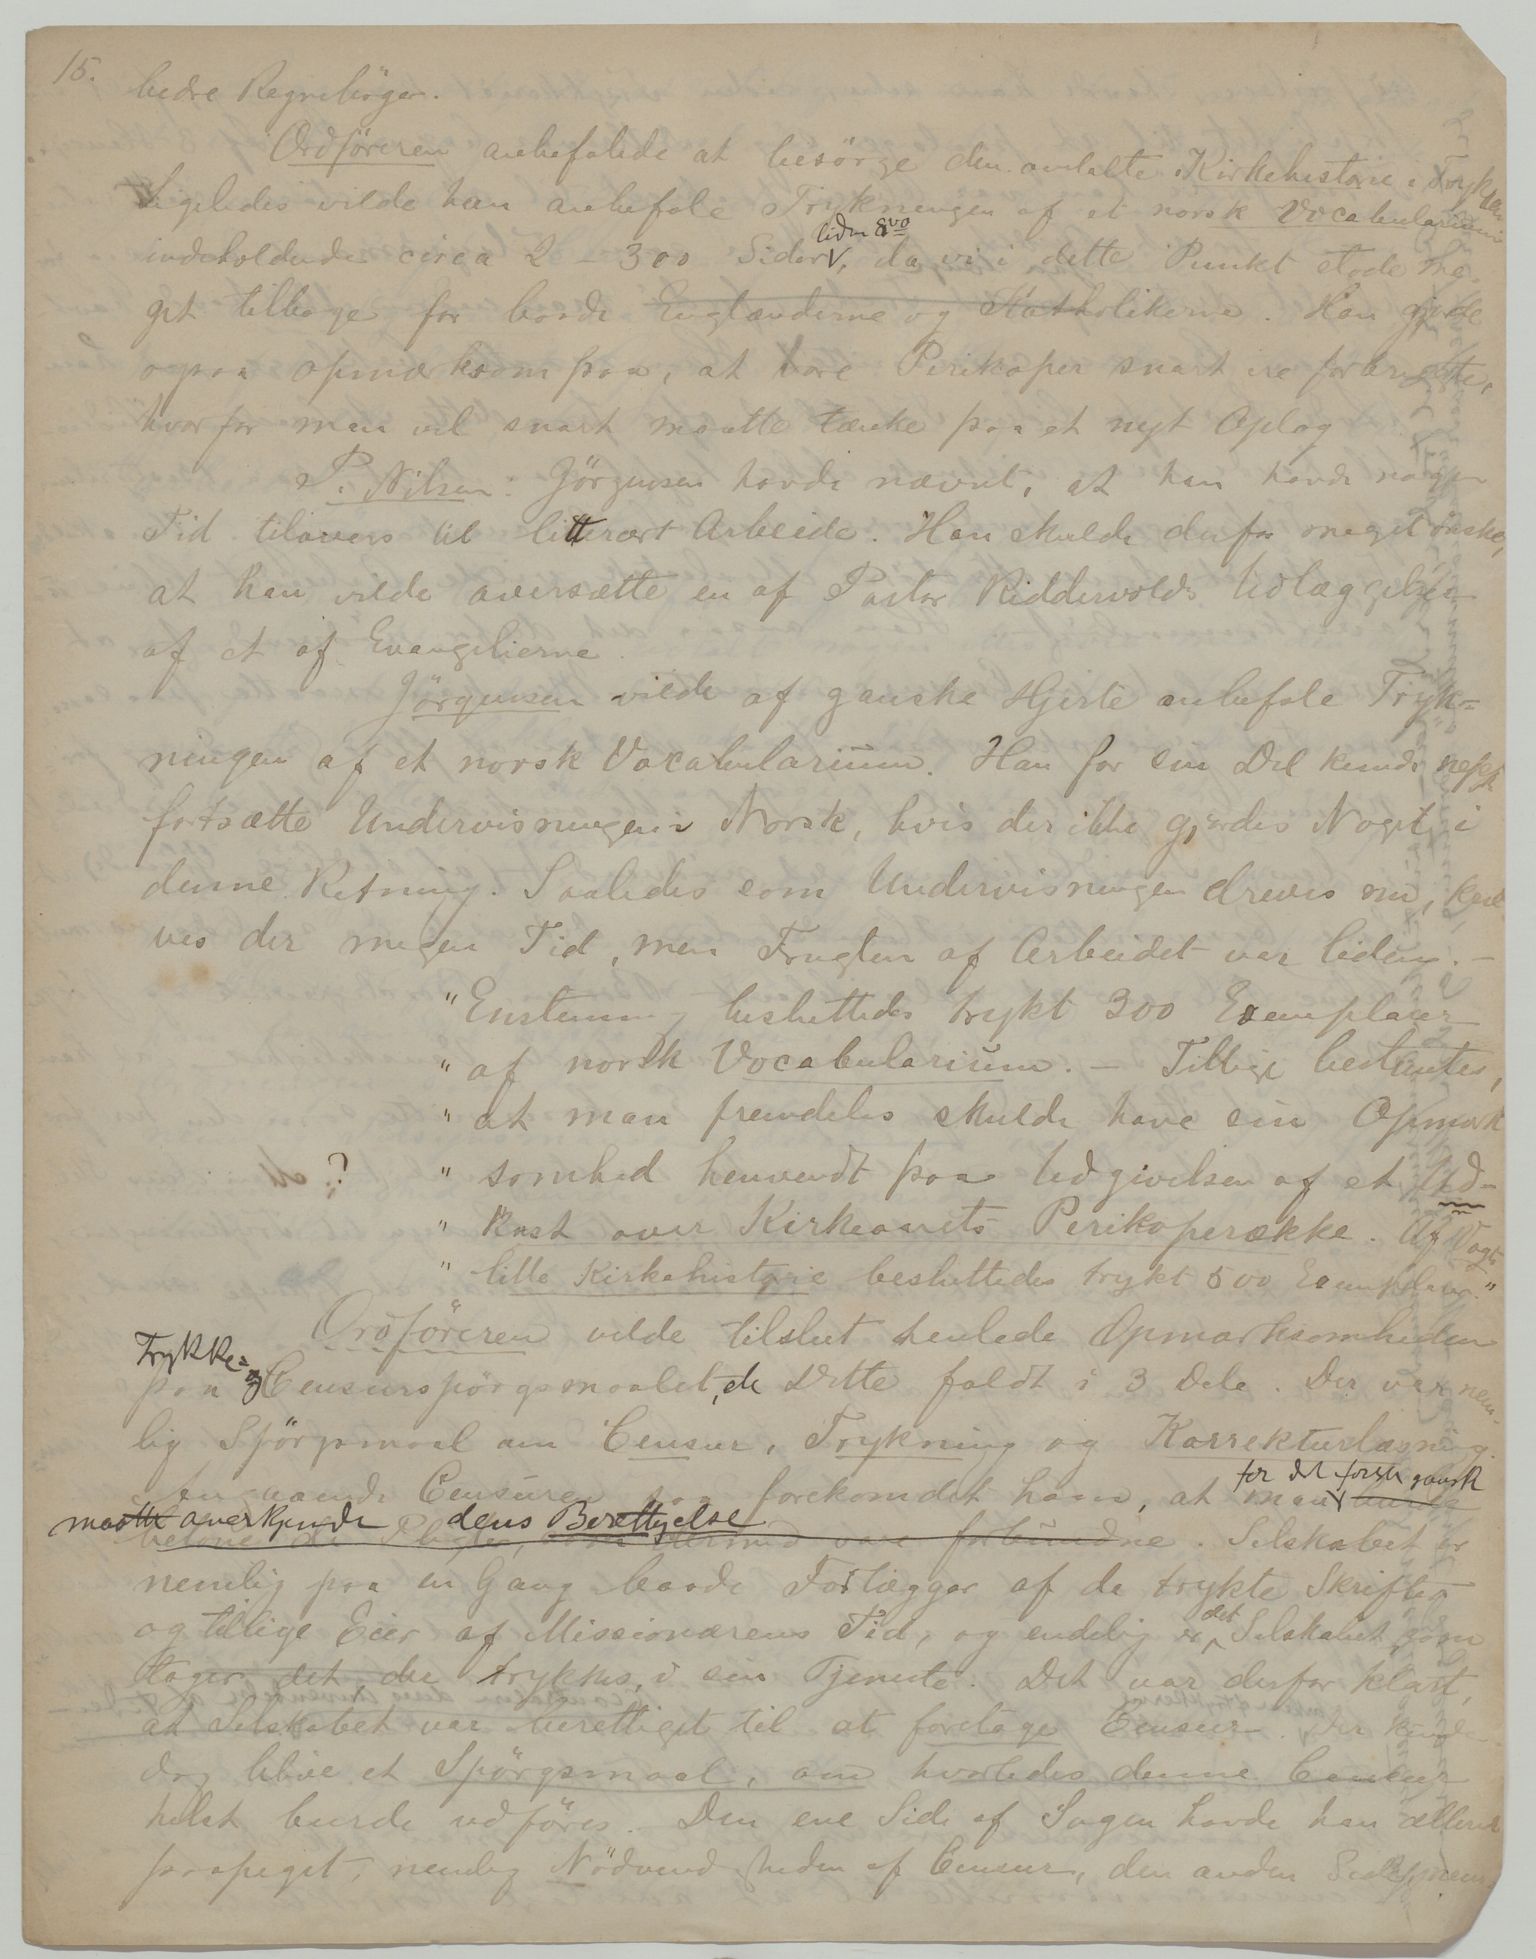 15.
bedre Regnebøger.
Ordföreren anbefalede at besörge den omtalte Kirkehistorie i Trykken
Ligeledes vilde han anbefale Trykningen af et norsk Vocabularium
indeholdende circa 2 – 300 Sider, liden 8vo da vi i dette Punkt stode me-
get tilbage for baade Englænderne og Katholikerne. Han gjorde
ogsaa opmærksom paa, at vore Perikoper snart ere forbrugte,
hvorfor man vel snart maatte tænke paa et nyt Oplag
P. Nilsen: Jörgensen havde nævnt, at han havde nogen
Tid tilovers til litterært Arbeide. Han skulde derfor meget önske,
at han vilde oversætte en af Pastor Riddervolds Udlæggelser
af et af Evangelierne.
Jörgensen vilde af ganske Hjerte anbefale Tryk=
ningen af et norsk Vocabularium. Han for sin Del kunde neppe
fortsætte Undervisningen i Norsk, hvis der ikke gjordes Noget i
denne Retning. Saaledes som Undervisningen dreves nu, kræ
ves der megen Tid, men Frugten af Arbeidet var liden. –
" Enstemmig besluttedes trykt 300 Exemplarer
" af norsk Vocabularium. – Tillige bestemtes,
" at man fremdeles skulde have sin Opmærk
" somhed henvendt paa Udgivelsen af et Ud-
?
" kast over Kirkeaarets Perikoperække. Af Vogts
" lille Kirkehistorie besluttedes trykt 500 Exemplarer."
Ordföreren vilde tilslut henlede Opmærksomheden
Trykke= og
paa Censurspörgsmaalet, de Dette faldt i 3 Dele. Der var nem-
lig Spörgsmaal om Censur, Trykning og Korrekturlæsning.
for det förste gansk
Angaaende Censuren saa forekomdet ham, at man burde
maatte anerkjende dens Berettigelse
betone de Pligter, som dermed vare forbundne. Selskabet er
nemlig paa en Gang baade Forlægger af de trykte Skrifter
og tillige Eier af Missionærens Tid, og endelig er det Selskabet, som
tager det, der trykkes, i sin Tjeneste. Det var derfor klart,
at Selskabet var berettiget til at foretage Censur. Der kunde
dog blive et Spörgsmaal, om hvorledes denne Censur
helst burde udföres. Den ene Side af Sagen havde han allerede
paapeget, nemlig Nödvendigheden af Censur, den anden Side